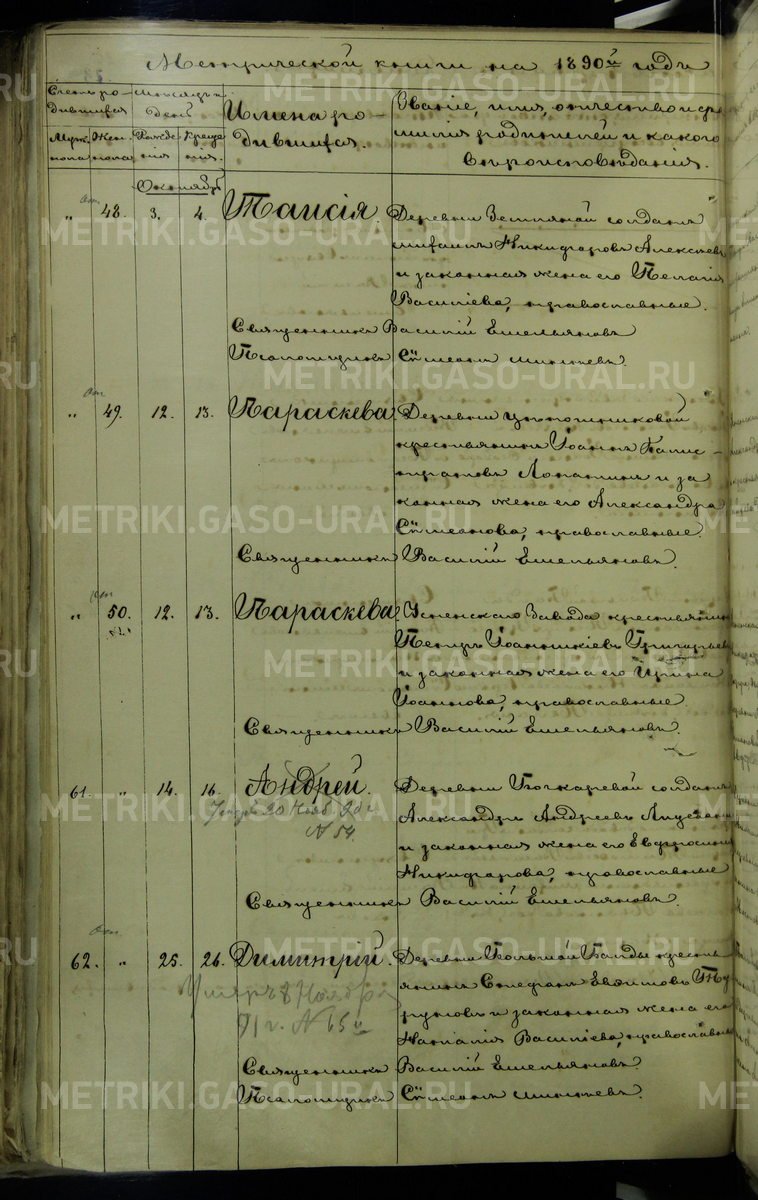 Метрической книги на 1890й годъ
Счетъ ро-
дившихся
Мѣсяцъ и
день
Имена ро-
дившихся.
Званіе, имя, отчество и фа-
милія родителей и какого
вѣроисповѣданія.
Муж.
пола
Жен.
пола
Рожде
нія
Креще
нія.
Октябрь
" 48. 3. 4. Таисія. Деревни солдатъ
Никифоровъ Алексѣевъ
и законная жена его Пелагія
Василіева, православные.
Священникъ Василій Емельяновъ
Псаломщикъ Сѵмеонъ
" 49. 12. 13. Параскева. Деревни
крестьянинъ Іоаннъ Калис-
тратовъ Лопатинъ и за
конная жена его Александра
Сѵмеонова, православные.
Священникъ Василій Емельяновъ.
" 50. 12. 13. Параскева. Успенскаго Завода крестьянинъ
Петръ Григорьевъ
и законная жена его Ирина
Іоаннова, православные.
Священникъ Василій Емельяновъ.
61. " 14. 16. Андрей. Деревни солдатъ
Александръ Андреевъ
и законная жена его Евфросинія
Никифорова, православные
20 Нояб. 90 г.
№ 54.
Священникъ Василій Емельяновъ.
62. " 25. 26. Димитрій. Деревни кресть
янинъ Стефанъ Евфимовъ Ту
руновъ и законная жена его
Наталія Василіева, православные
Умеръ 8 Ноября
91 г. № 65й
Священникъ Василій Емельяновъ
Псаломщикъ Сѵмеонъ
METRIKI.GASO-URAL.RU